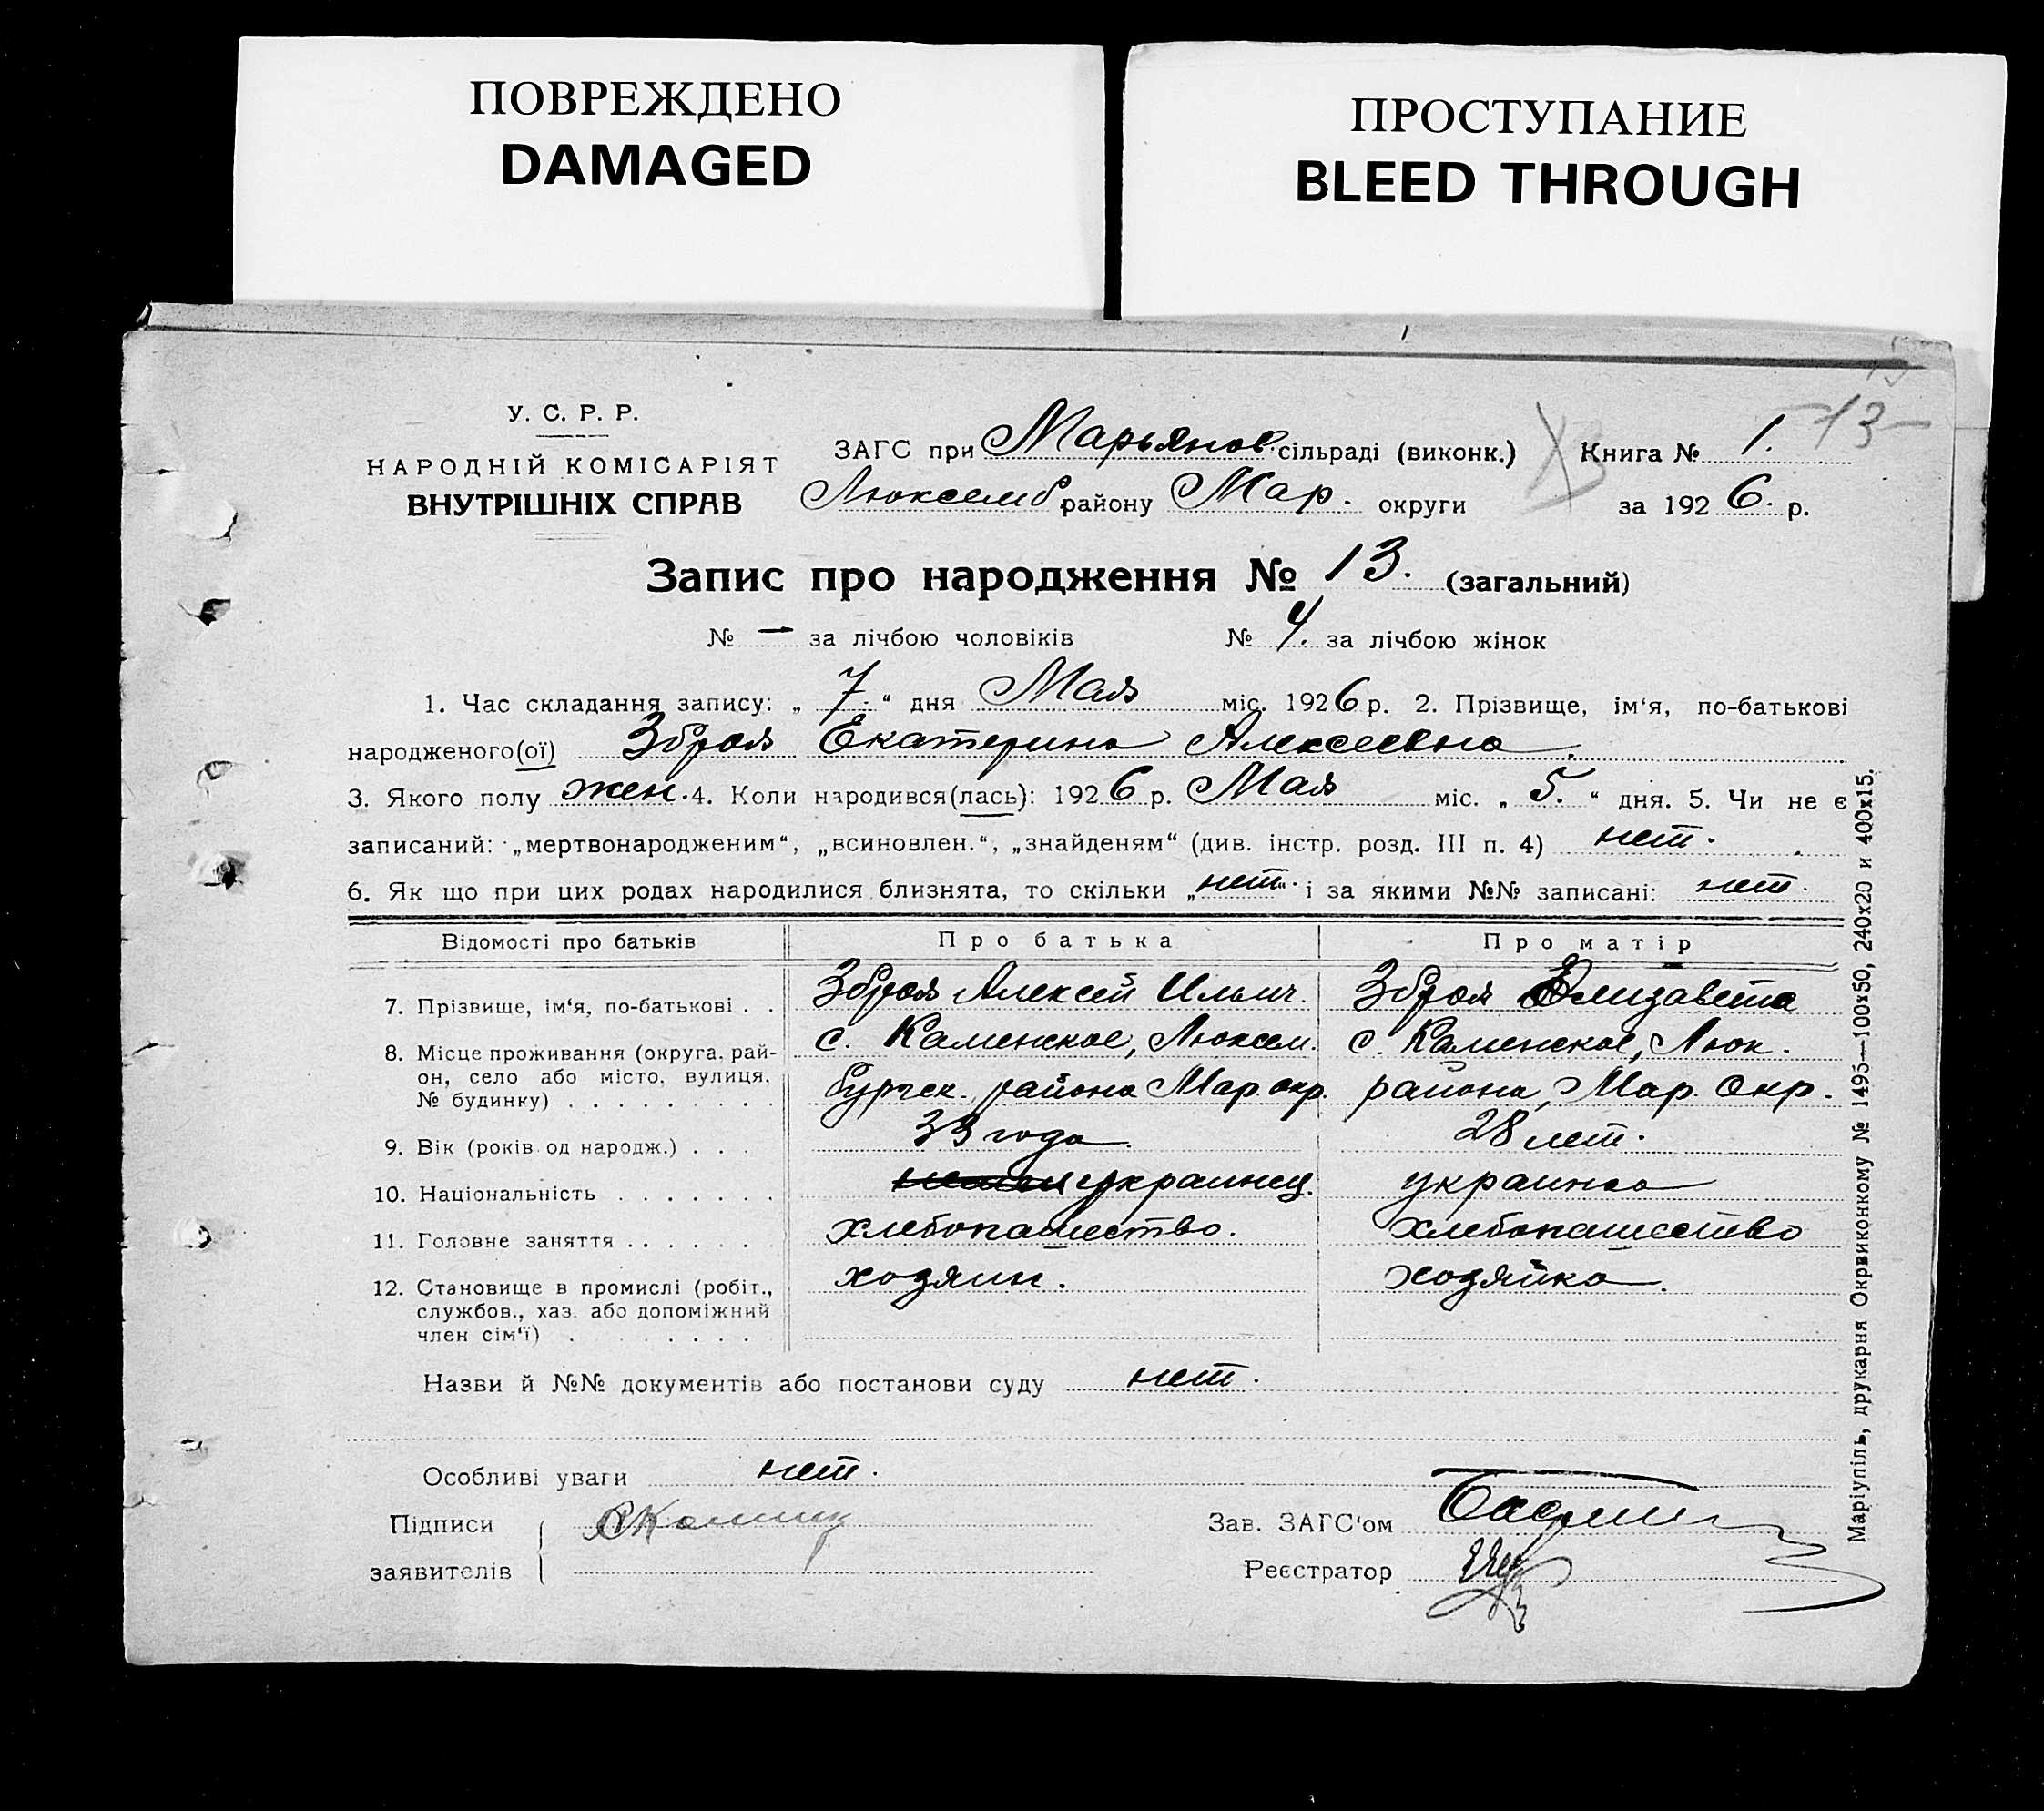 ПОВРЕЖДЕНО
DAMAGED
ПРОСТУПАНИЕ
BLEED THROUGH
У. С. Р. Р.
НАРОДНІЙ КОМІСАРІЯТ
ВНУТРІШНІХ СПРАВ
ЗАГС при Марьянов. сільраді (виконк.)
Люксемб. району Мар. округи
Книга № 1. -13-
за 1926. р.
Запис про народження № 13. (загальний)
№ — за лічбою чоловіків № 4. за лічбою жінок
1. Час складання запису: „ 7. “ дня Мая міс. 1926 р. 2. Прізвище, ім‘я, по-батькові
народженого(ої) Зброя Екатерина Алексеевна.
3. Якого полу жен. 4. Коли народився(лась): 1926 р. Мая міс. „ 5. “ дня. 5. Чи не є
записаний: „мертвонародженим“, „всиновлен.“, „знайденям“ (див. інстр. розд. III п. 4) нет.
6. Як що при цих родах народилися близнята, то скільки „нет“. і за якими №№ записані: нет.
Відомості про батьків Про батька Про матір
7. Прізвище, ім‘я, по-батькові . . Зброя Алексей Ильич. Зброя Елизавета
8. Місце проживання (округа, рай- с. Каменское, Люксем. с. Каменское, Люк.
он, село або місто, вулиця, бургск. района Мар. окр. района, Мар. Окр.
№ будинку) . . . . . . . . .
9. Вік (років од народж.) . . . 33 года 28 лет.
10. Національність . . . . . . . украинец. украинка
11. Головне заняття . . . . . . хлебопашество. хлебопашество
12. Становище в промислі (робіт., хозяин. хозяйка.
службов., хаз. або допоміжний
член сім‘ї) . . . . . . . .
Назви й №№ документів або постанови суду нет.
Особливі уваги нет.
Підписи
заявителів
Зав. ЗАГС‘ом
Реєстратор
Маріупіль, друкарня Окрвиконкому № 1495—100х50, 240х20 и 400х15.